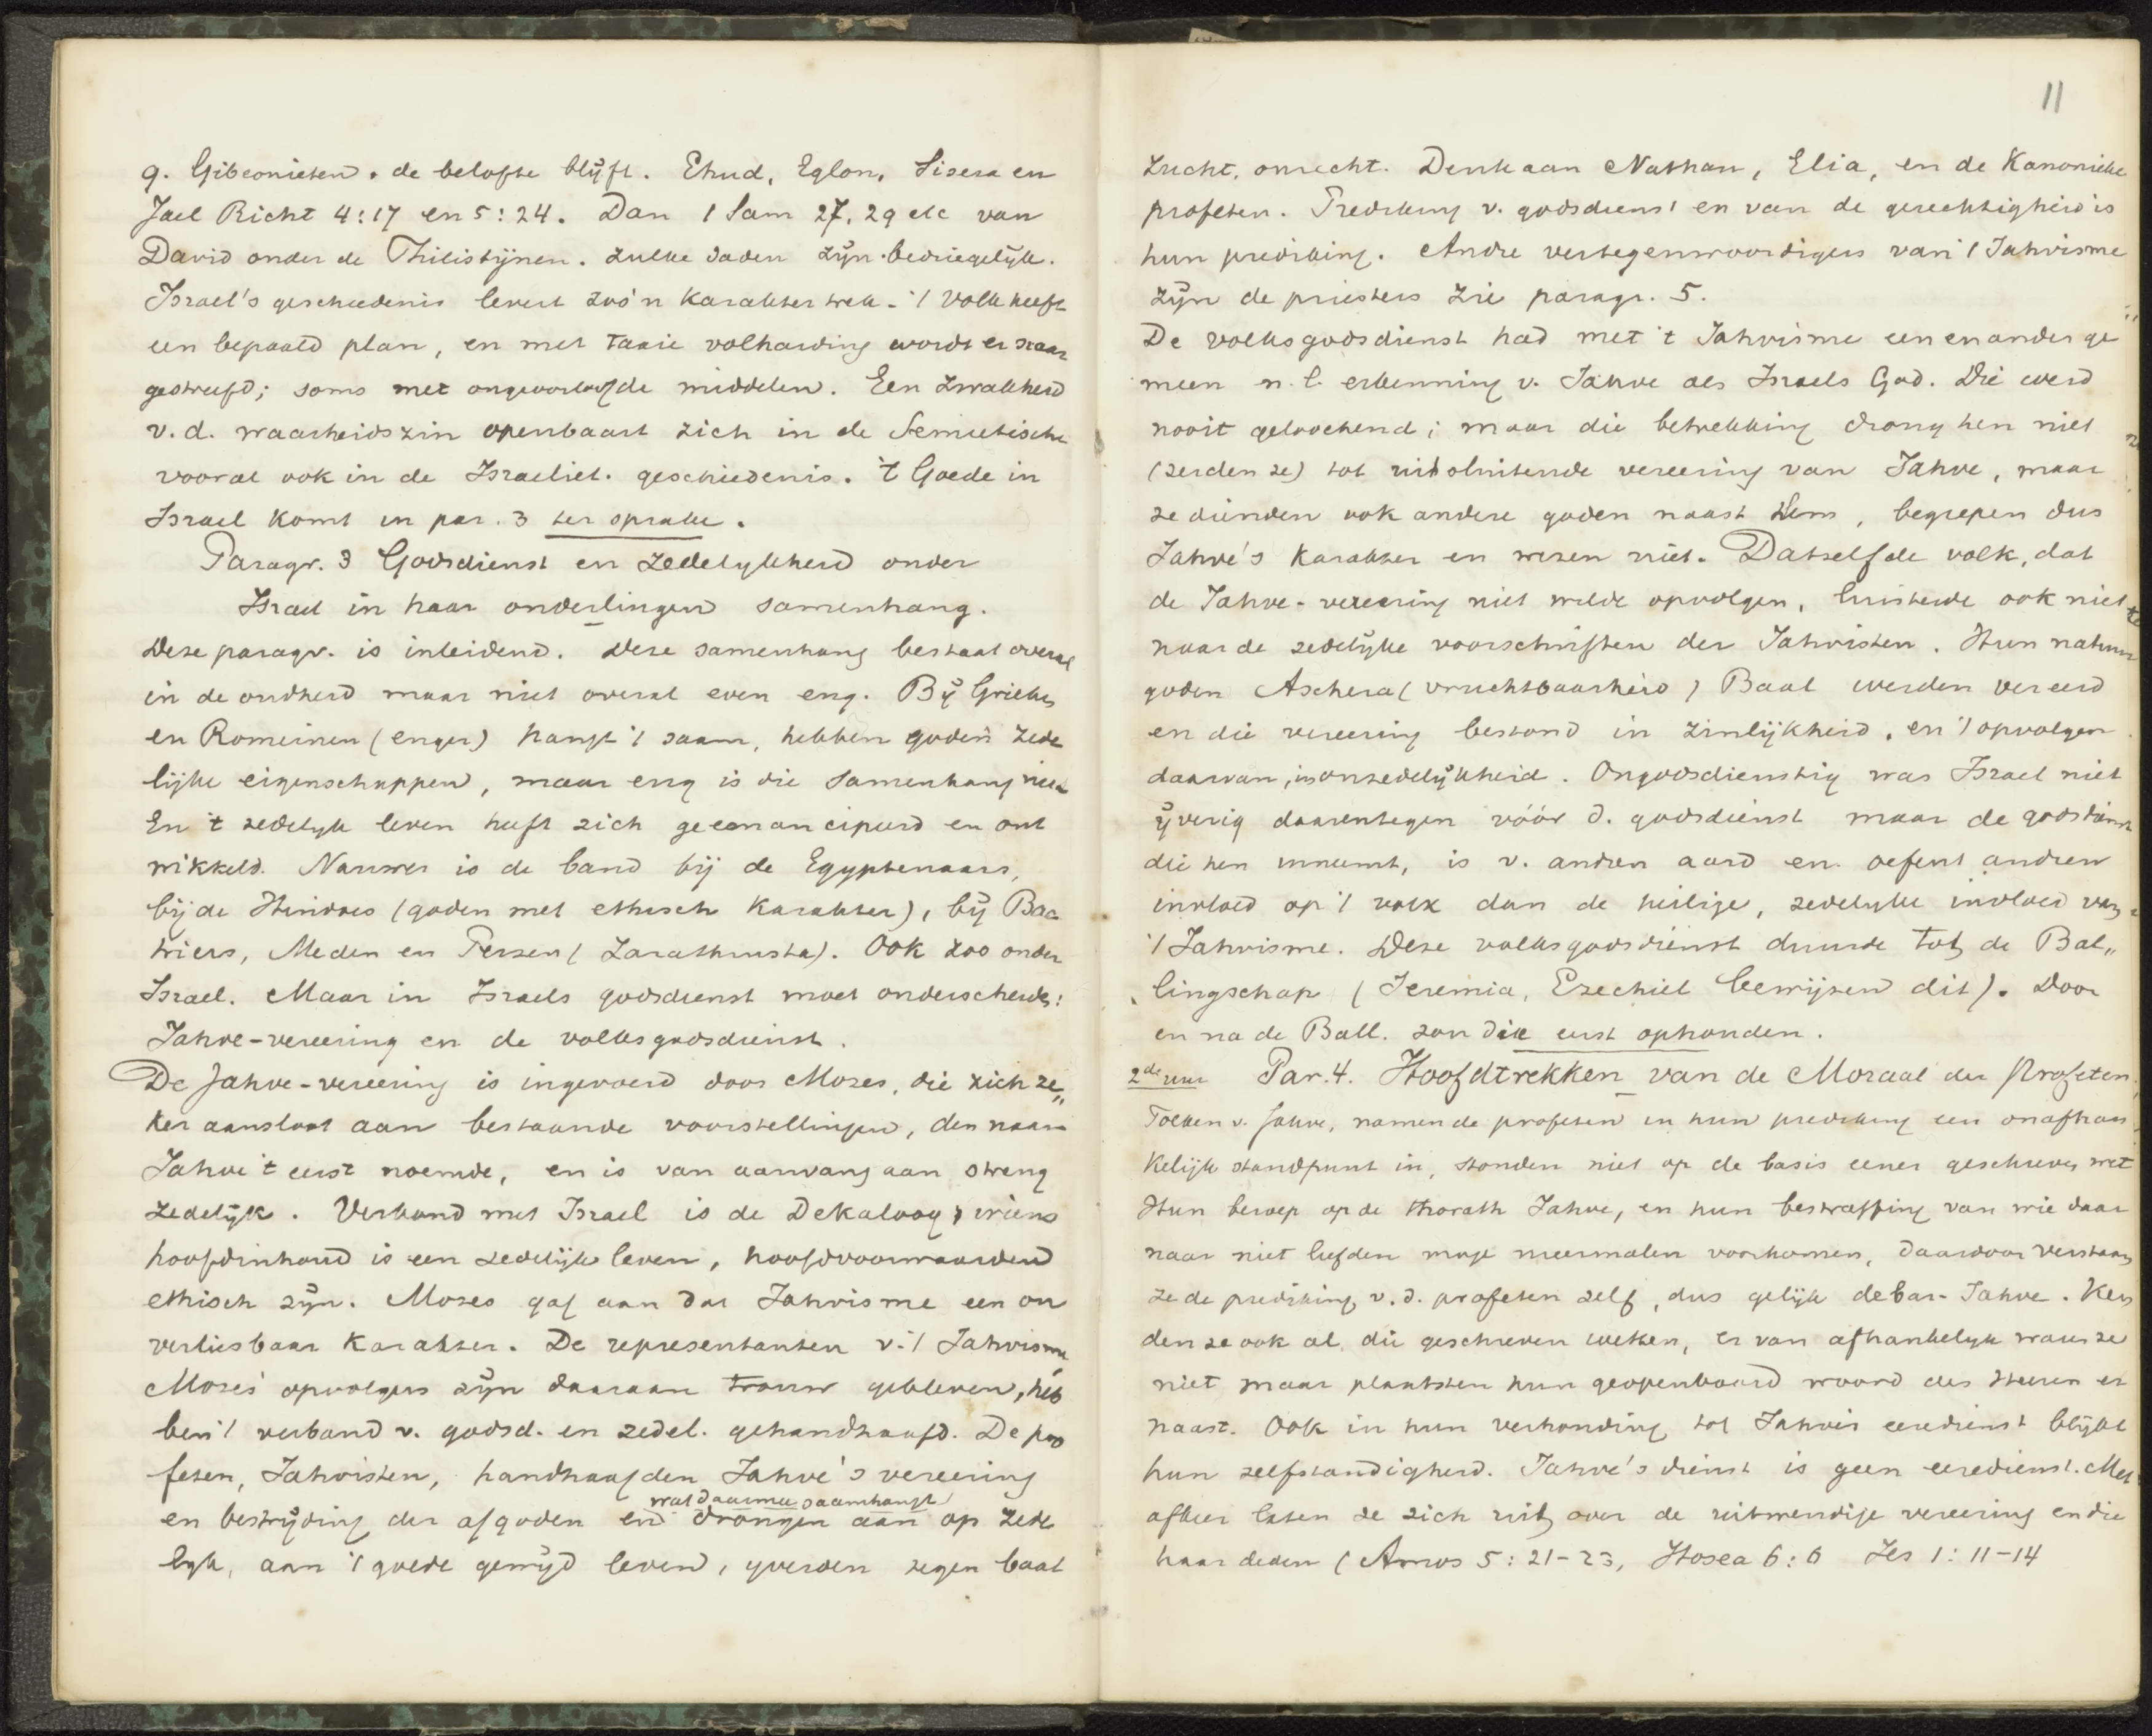 9. Gibeonieten. de belofte blijft. Ehud, Eglon, Sisera en
Jael Richt 4:17 en 5:24. Dan 1 Sam 27, 29 etc van
David onder de Philistijnen. Zulke daden zijn bedriegelijk.
Israel's geschiedenis levert zoo'n karaktertrek. 't Volk heeft
een bepaald plan, en met taaie volharding wordt er naar
gestreefd; soms met ongeoorloofde middelen. Een zwakheid
v.d. waarheidszin openbaart zich in de Semietische
vooral ook in de Israeliet. geschiedenis. 't Goede in
Israel komt in par. 3 ter sprake.
Paragr. 3 Godsdienst en zedelykheid onder
Israel in haar onderlingen samenhang.
Deze paragr. is inleidend. Deze samenhang bestaat overal
in de oudheid maar niet overal even eng. Bij Grieken
en Romeinen (enger) hangt 't saam, hebben goden zede
lijke eigenschappen, maar eng is die samenhang niet
En 't zedelyk leven heeft zich geemancipeerd en ont
wikkeld. Nauwer is de band bij de Egyptenaars,
bij de Hindoes (goden met ethisch karakter), bij Bac
triers, Meden en Perzen (Zarathustra). Ook zoo onder
Israel. Maar in Israels godsdienst moet onderscheiden:
Jahve-vereering en de volksgodsdienst.
De Jahve-vereering is ingevoerd door Mozes, die zich ze„
ker aansloot aan bestaande voorstellingen, den naam
Jahve 't eerst noemde, en is van aanvang aan streng
zedelijk. Verbond met Israel is de Dekaloog, wiens
hoofdinhoud is een zedelijk leven, hoofdvoorwaarden
ethisch zijn. Mozes gaf aan dat Jahvisme een on
verliesbaar karakter. De representanten v. 't Jahvisme
Mozes' opvolgers zijn daaraan trouw gebleven, heb
ben 't verband v. godsd. en zedel. gehandhaafd. De pro
feten, Jahvisten, handhaafden Jahve's vereering
wat daarmee saamhangt
en bestrijding der afgoden en drongen aan op zede
lyk, aan 't goede gewijd leven, yverden tegen baat
11
zucht, onrecht. Denk aan Nathan, Elia, en de Kanonieke
profeten. Prediking v. godsdienst en van de gerechtigheid is
hun prediking. Andre vertegenwoordigers van 't Jahvisme
zijn de priesters zie paragr. 5.
De volksgodsdienst had met 't Jahvisme een en ander ge
meen n.l. erkenning v. Jahve als Israels God. Die werd
nooit geloochend; maar die betrekking drong hen niet
(zeiden ze) tot uitsluitende vereering van Jahve, maar
ze dienden ook andere goden naast Hem, begrepen dus
Jahve's karakter en wezen niet. Datzelfde volk, dat
de Jahve-vereering niet wilde opvolgen, luisterde ook niet
naar de zedelijke voorschriften der Jahvisten. Hun natuur
goden Aschera (vruchtbaarheid) Baal werden vereerd
en die vereering bestond in zinlijkheid, en 't opvolgen
daarvan, in onzedelijkheid. Ongodsdienstig was Israel niet
ijverig daarentegen vóór d. godsdienst maar de godsdienst
die hen inneemt, is v. andren aard en oefent andren
invloed op 't volk dan de heilige, zedelyke invloed van
't Jahvisme. Deze volksgodsdienst duurde tot de Bal„
lingschap (Jeremia, Ezechiel bewijzen dit). Door
en na de Ball. zou die eerst ophouden.
2de uur Par. 4. Hoofdtrekken van de Moraal der Profeten
Tolken v. Jahve, namen de profeten in hun prediking een onafhan
kelijk standpunt in, stonden niet op de basis eener geschreven wet
Hun beroep op de thorath Jahve, en hun bestraffing van wie daar
naar niet leefden moge meermalen voorkomen, daardoor verstaan
ze de prediking v.d. profeten zelf, dus gelijk debar-Jahve. Ken
den ze ook al die geschreven wetten, er van afhankelyk waren ze
niet maar plaatsten hun geopenbaard woord des Heeren er
naast. Ook in hun verhouding tot Jahve's eeredienst blijkt
hun zelfstandigheid. Jahve's dienst is geen eeredienst. Met
afkeer laten ze zich uit over de uitwendige vereering en die
haar deden (Amos 5:21-23, Hosea 6:6 Jes 1:11-14